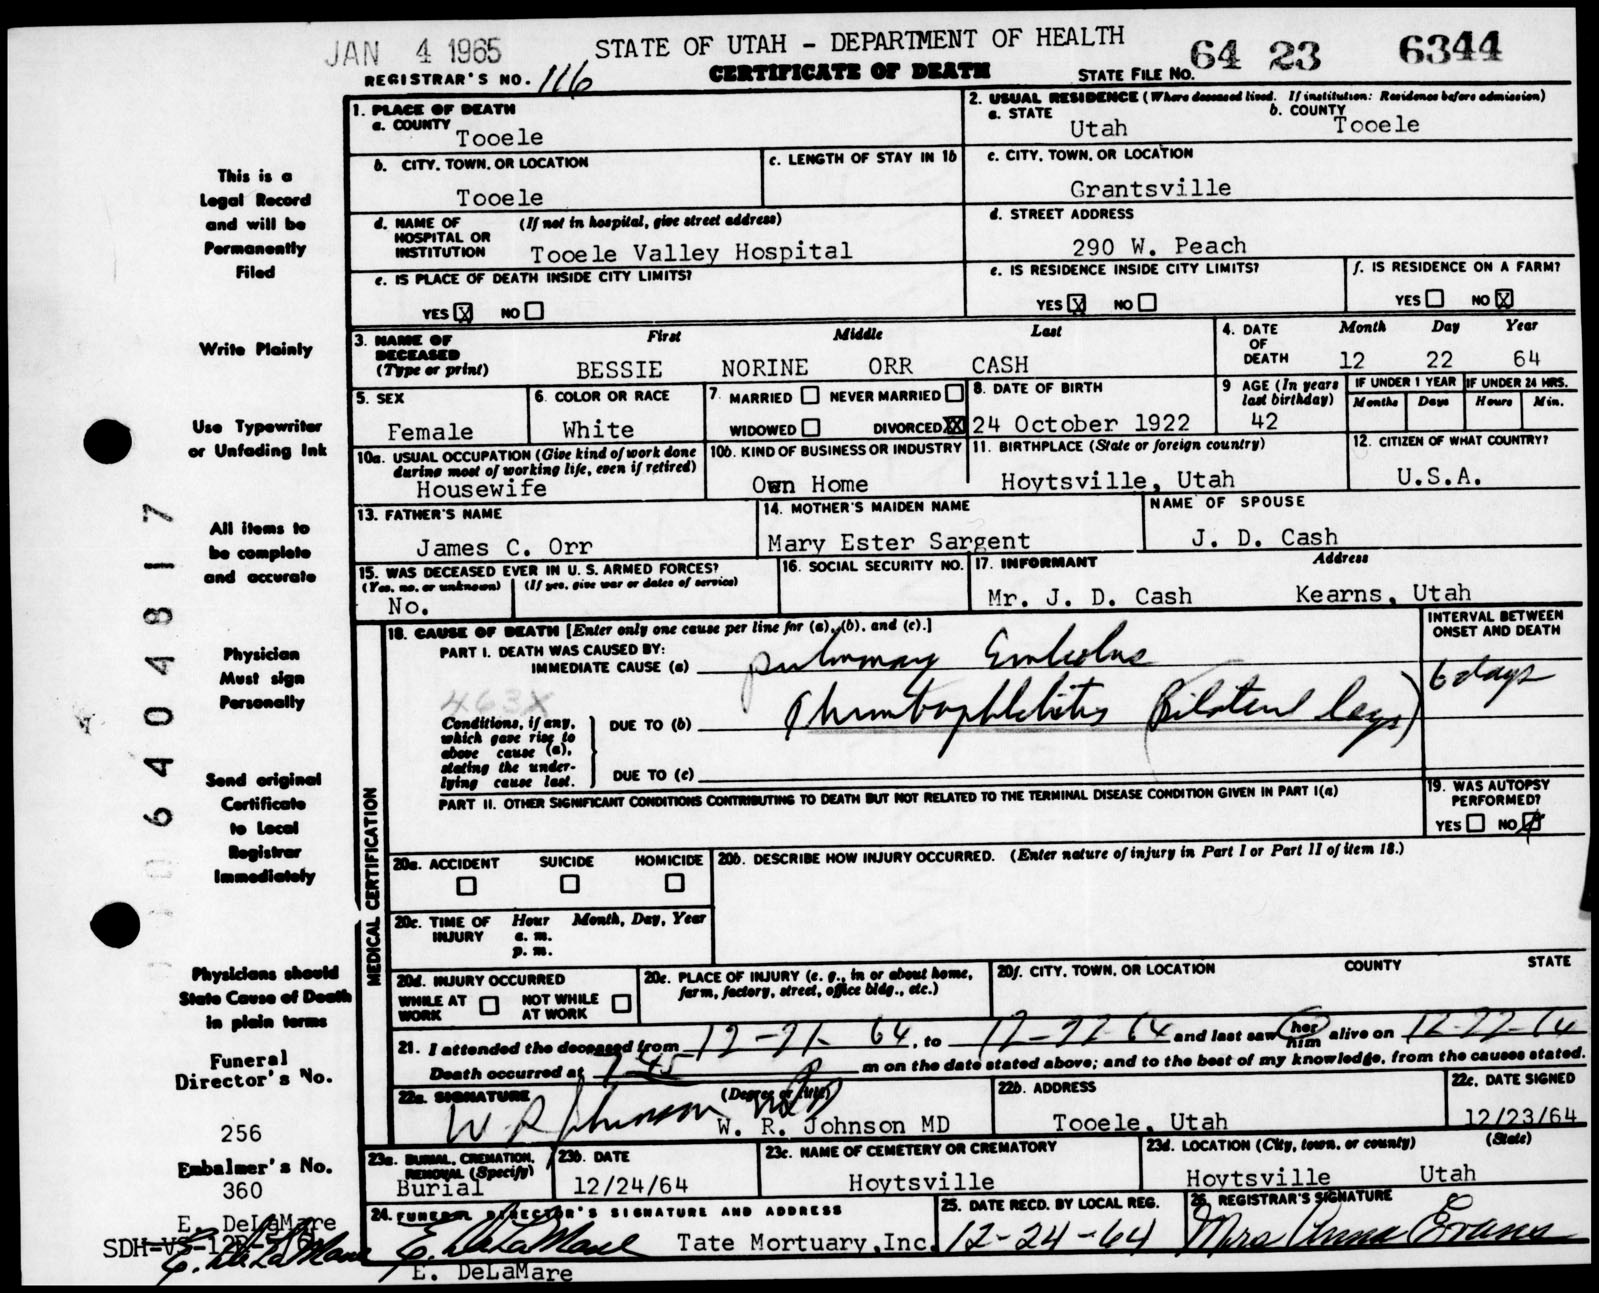 JAN 4 1965
STATE OF UTAH - DEPARTMENT OF HEALTH
CERTIFICATE OF DEATH
REGISTRAR'S NO. 116
STATE FILE NO. 64 23 6344
This is a
Legal Record
and will be
Permanently
Filed
Write Plainly
Use Typewriter
or Unfading Ink
All items to
be complete
and accurate
Physician
Must sign
Personally
Send original
Certificate
to Local
Registrar
Immediately
Physicians should
State Cause of Death
in plain terms
Funeral
Director's No.
256
Embalmer's No.
360
E. DeLaMare
E. DeLaMare
06404817
1. PLACE OF DEATH
a. COUNTY
Tooele
2. USUAL RESIDENCE (Where deceased lived. If institution: Residence before admission)
a. STATE
Utah
b. COUNTY
Tooele
b. CITY, TOWN, OR LOCATION
Tooele
c. LENGTH OF STAY IN 1b
c. CITY, TOWN, OR LOCATION
Grantsville
d. NAME OF HOSPITAL OR INSTITUTION (If not in hospital, give street address)
Tooele Valley Hospital
d. STREET ADDRESS
290 W. Peach
e. IS PLACE OF DEATH INSIDE CITY LIMITS?
YES X NO
e. IS RESIDENCE INSIDE CITY LIMITS?
YES X NO
f. IS RESIDENCE ON A FARM?
YES NO X
3. NAME OF DECEASED (Type or print)
First Middle Last
BESSIE NORINE ORR CASH
4. DATE OF DEATH
Month Day Year
12 22 64
5. SEX
Female
6. COLOR OR RACE
White
7. MARRIED NEVER MARRIED
WIDOWED DIVORCED X
8. DATE OF BIRTH
24 October 1922
9 AGE (In years last birthday)
42
IF UNDER 1 YEAR
Months Days
IF UNDER 24 HRS.
Hours Min.
10a. USUAL OCCUPATION (Give kind of work done during most of working life, even if retired)
Housewife
10b. KIND OF BUSINESS OR INDUSTRY
Own Home
11. BIRTHPLACE (State or foreign country)
Hoytsville, Utah
12. CITIZEN OF WHAT COUNTRY?
U.S.A.
13. FATHER'S NAME
James C. Orr
14. MOTHER'S MAIDEN NAME
Mary Ester Sargent
NAME OF SPOUSE
J. D. Cash
15. WAS DECEASED EVER IN U.S. ARMED FORCES?
(Yes, no, or unknown) (If yes, give war or dates of service)
No.
16. SOCIAL SECURITY NO.
17. INFORMANT Address
Mr. J. D. Cash Kearns, Utah
MEDICAL CERTIFICATION
18. CAUSE OF DEATH [Enter only one cause per line for (a), (b), and (c).]
INTERVAL BETWEEN ONSET AND DEATH
PART I. DEATH WAS CAUSED BY:
IMMEDIATE CAUSE (a) pulmonary Embolus
463X
Conditions, if any, which gave rise to above cause (a), stating the underlying cause last.
DUE TO (b) Thrombophlebitis (Bilateral legs)
6 days
DUE TO (c)
PART II. OTHER SIGNIFICANT CONDITIONS CONTRIBUTING TO DEATH BUT NOT RELATED TO THE TERMINAL DISEASE CONDITION GIVEN IN PART I(a)
19. WAS AUTOPSY PERFORMED?
YES NO X
20a. ACCIDENT SUICIDE HOMICIDE
20b. DESCRIBE HOW INJURY OCCURRED. (Enter nature of injury in Part I or Part II of item 18.)
20c. TIME OF INJURY Hour Month, Day, Year
a. m.
p. m.
20d. INJURY OCCURRED
WHILE AT WORK NOT WHILE AT WORK
20e. PLACE OF INJURY (e. g., in or about home, farm, factory, street, office bldg., etc.)
20f. CITY, TOWN, OR LOCATION COUNTY STATE
21. I attended the deceased from 12-21-64, to 12-22-64 and last saw her him alive on 12-22-64
Death occurred at m on the date stated above; and to the best of my knowledge, from the causes stated.
22a. SIGNATURE (Degree or title)
W R Johnson MD
W. R. Johnson MD
22b. ADDRESS
Tooele, Utah
22c. DATE SIGNED
12/23/64
23a. BURIAL, CREMATION, REMOVAL (Specify)
Burial
23b. DATE
12/24/64
23c. NAME OF CEMETERY OR CREMATORY
Hoytsville
23d. LOCATION (City, town, or county) (State)
Hoytsville Utah
24. FUNERAL DIRECTOR'S SIGNATURE AND ADDRESS
E. DeLaMare Tate Mortuary, Inc.
E. DeLaMare
25. DATE RECD. BY LOCAL REG.
12-24-64
26. REGISTRAR'S SIGNATURE
Mrs Anna Evans